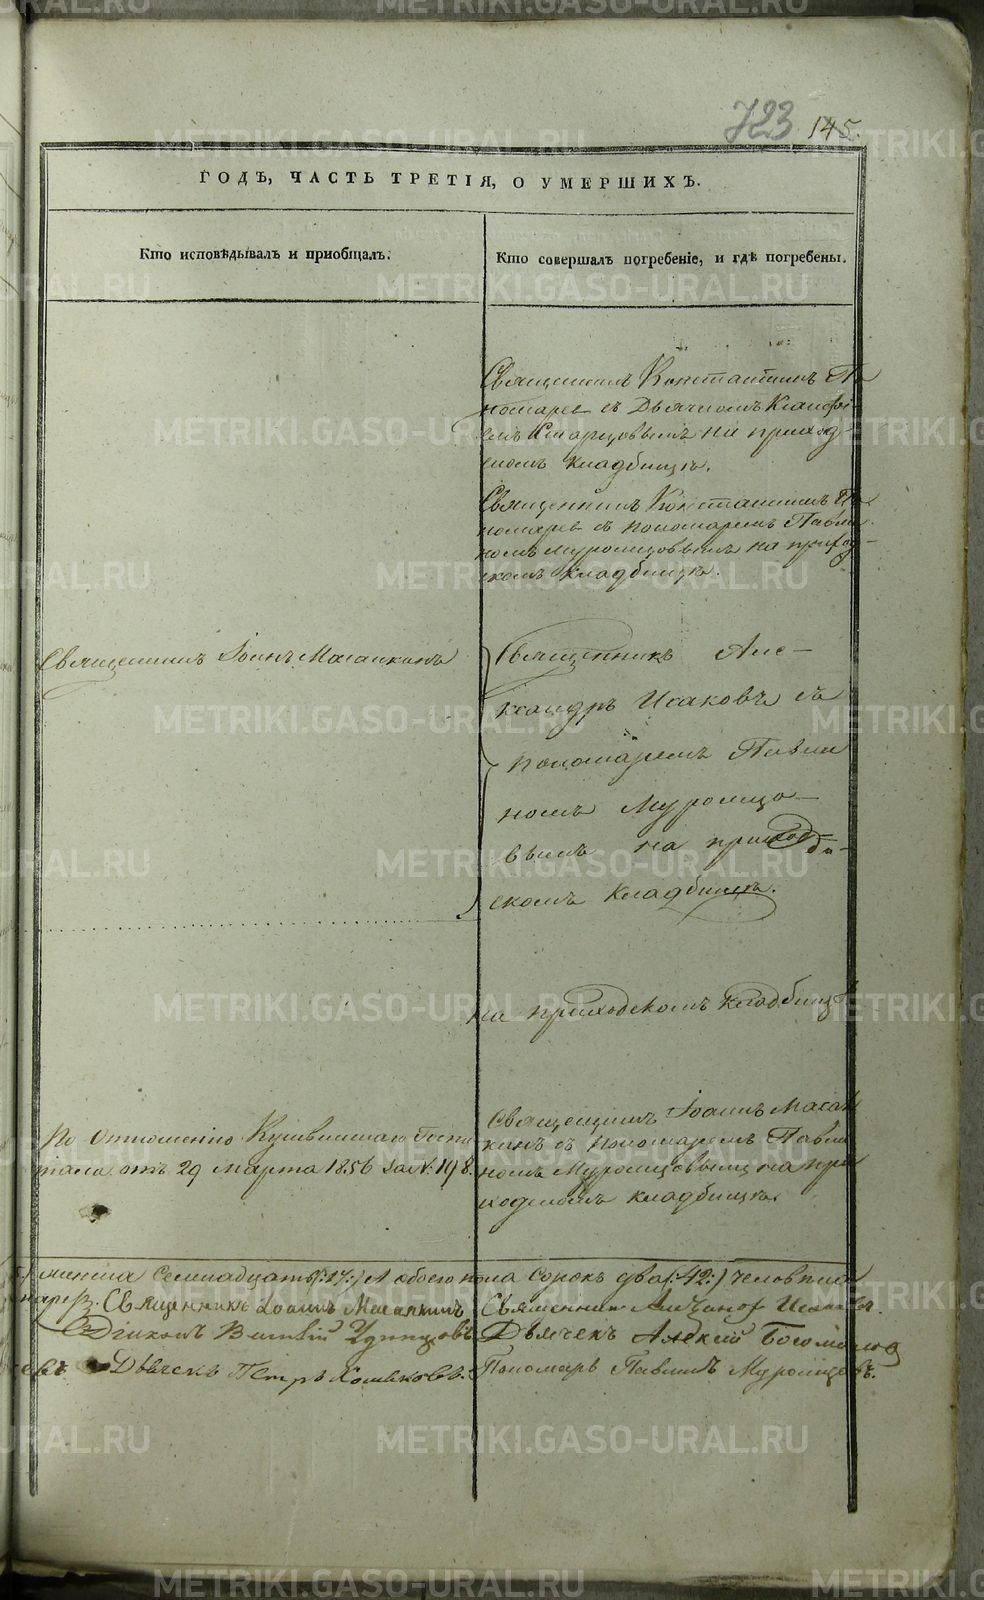 723 145.
ГОДЪ, ЧАСТЬ ТРЕТІЯ, О УМЕРШИХЪ.
Кто исповѣдывалъ и приобщалъ.
Кто совершалъ погребеніе, и гдѣ погребены.
Священникъ Константинъ По
номарев съ Дьячкомъ
Старцовымъ на приход-
скомъ кладбищѣ.
Священникъ Константинъ По
номарев съ пономаремъ Павли
номъ Муромцовымъ на приход-
скомъ кладбищѣ.
Священникъ Іоаннъ Масалкинъ
Священникъ Але-
ксандръ Исаковъ съ
пономаремъ Павли
номъ Муромцо-
вымъ на приход-
скомъ кладбищѣ.
на приходскомъ кладбищѣ
По отношенію Кушвинскаго Госпи
тала отъ 29 марта 1856 за №. 198.
Священникъ Іоаннъ Масал
кинъ съ пономаремъ Павли
номъ Муромцовымъ на при
ходскомъ кладбищѣ.
женска семнадцать (:17:) А обоего пола сорокъ два (:42:) человѣка
Священникъ Іоаннъ Масалкинъ
Діаконъ Удинцовъ
Дьячекъ Петръ Хомяковъ.
Священникъ Александръ Исаковъ.
Дьячекъ Алексій Богомолов
Пономарь Павлинъ Муромцовъ.
METRIKI.GASO-URAL.RU